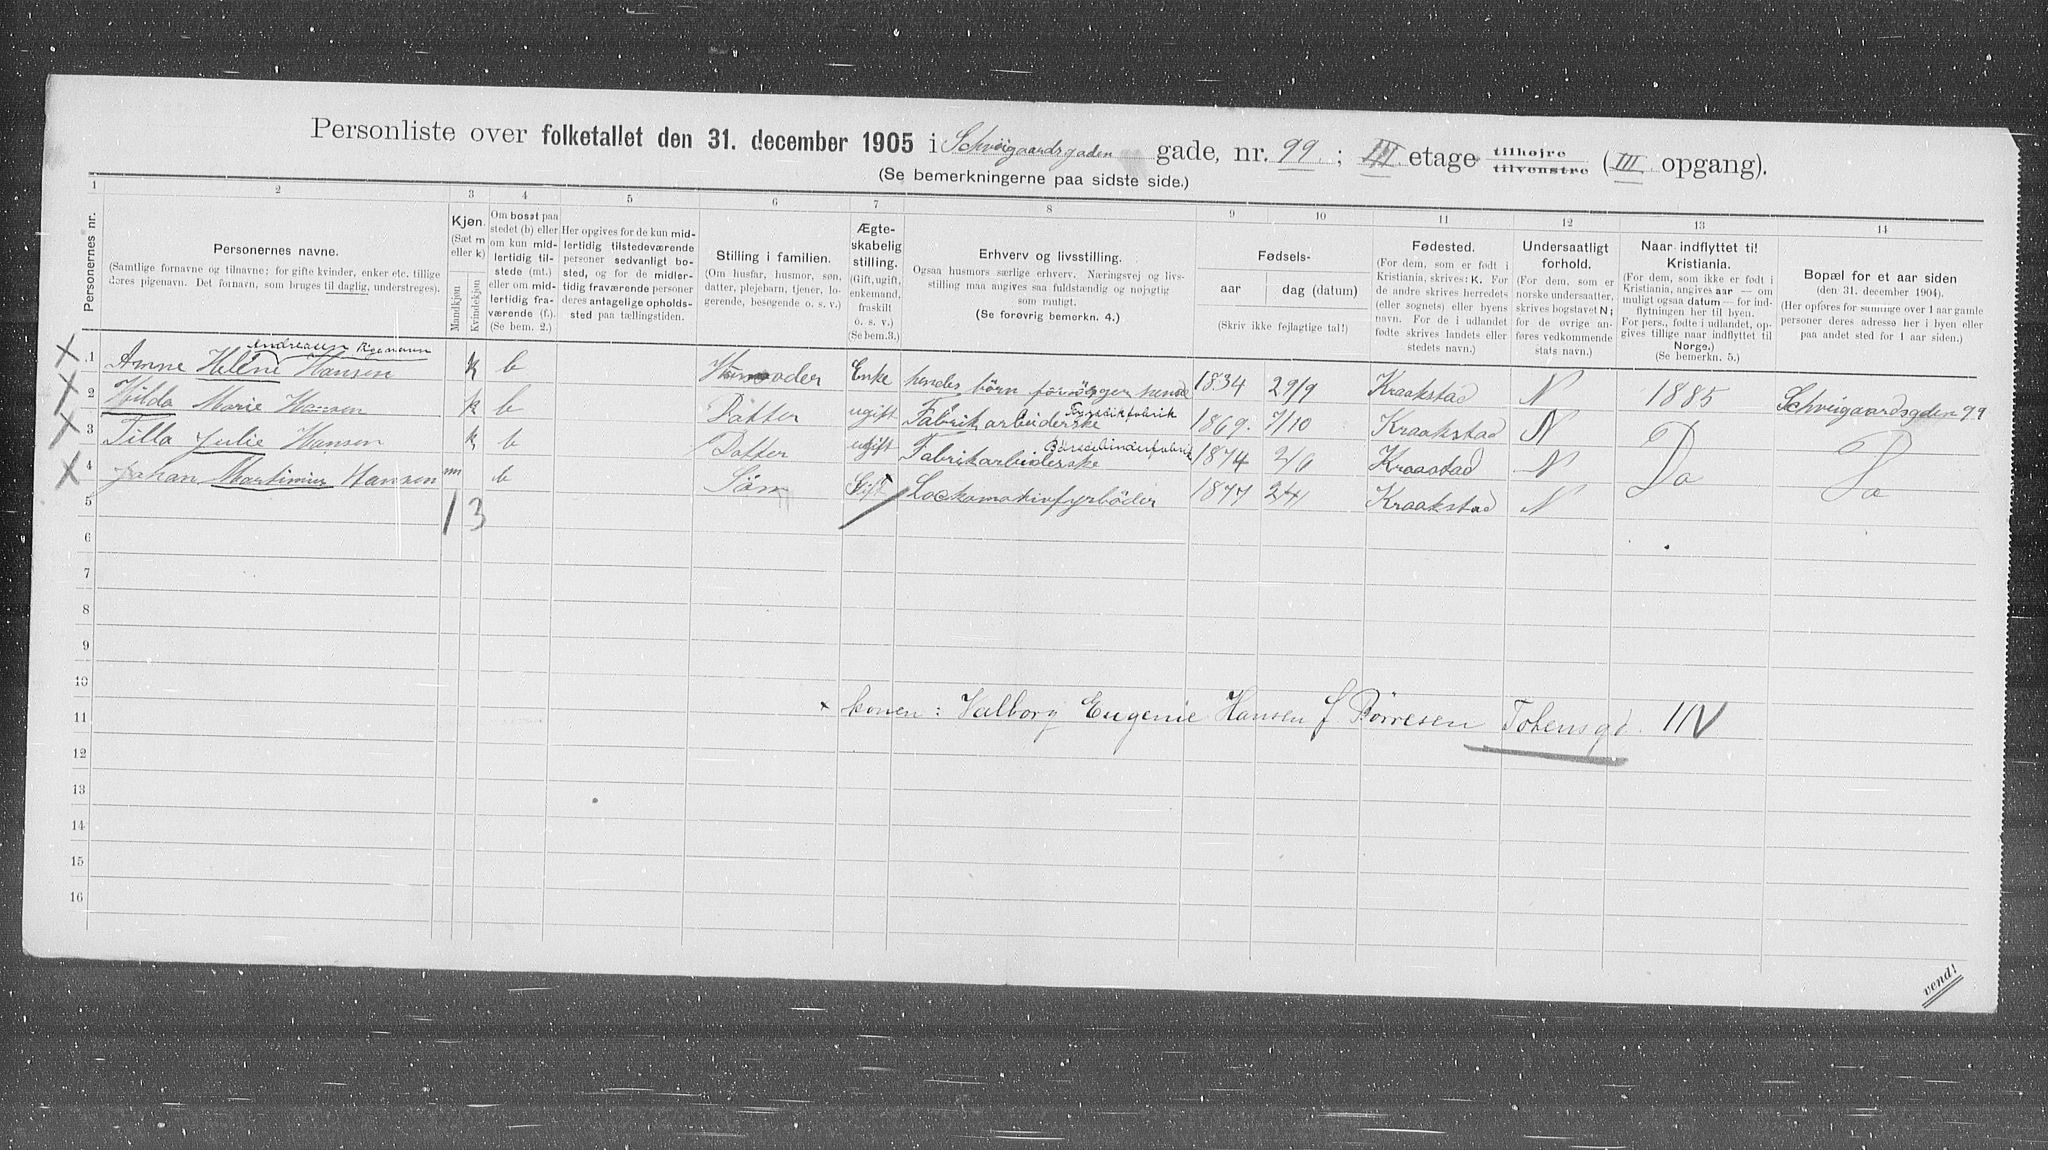 Personliste over folketallet den 31. december 1905 i Schveigaardsgaden gade, nr. 99. ; III etage tilhøjre tilvenstre (III opgang).
(Se bemerkningerne paa sidste side.)
1 2 3 4 5 6 7 8 9 10 11 12 13 14
Personernes nr.
Personernes navne.
(Samtlige fornavne og tilnavne; for gifte kvinder, enker etc. tillige
deres pigenavn. Det fornavn, som bruges til daglig, understreges).
Kjøn.
(Sæt m
eller k)
Mandkjøn
Kvindekjøn
Om bosat paa
stedet (b) eller
om kun mid-
lertidig til-
stede (mt.)
eller om mid-
lertidig fra-
værende (f.).
(Se bem. 2.)
Her opgives for de kun mid-
lertidig tilstedeværende
personer sedvanligt bo-
sted, og for de midler-
tidig fraværende personer
deres antagelige opholds-
sted paa tællingstiden.
Stilling i familien.
(Om husfar, husmor, søn,
datter, plejebarn, tjener, lo-
gerende, besøgende o. s. v.)
Ægte-
skabelig
stilling.
(Gift, ugift,
enkemand,
fraskilt
o. s. v.)
(Se bem.3.)
Erhverv og livsstilling.
Ogsaa husmors særlige erhverv. Næringsvej og livs-
stilling maa angives saa fuldstændig og nøjagtig
som muligt.
(Se forøvrig bemerkn. 4.)
Fødsels-
aar
dag (datum)
(Skriv ikke fejlagtige tal!)
Fødested.
(For dem, som er født i
Kristiania, skrives: K. For
de andre skrives herredets
(eller sognets) eller byens
navn. For de i udlandet
fødte skrives landets eller
stedets navn.)
Undersaatligt
forhold.
(For dem, som er
norske undersaatter,
skrives bogstavet N;
for de øvrige an-
føres vedkommende
stats navn.)
Naar indflyttet til
Kristiania.
(For dem, som ikke er født i
Kristiania, angives aar — om
muligt ogsaa datum — for ind-
flytningen her til byen.
For pers., fødte i udlandet, op-
gives tillige naar indflyttet til
Norge.)
(Se bemerkn. 5.)
Bopæl for et aar siden
(den 31. december 1904).
(Her opføres for samtlige over 1 aar gamle
personer deres adresse her i byen eller
paa andet sted for 1 aar siden.)
Andreasen Pigenavn
1 Anne Helene Hansen k b Husmoder Enke hendes börn forsörger hende 1834 29/9 Kraakstad N 1885 Schveigaardsgden 99
2 Hilda Marie Hansen k b Datter ugift Fabrikarbeiderske 1869. 7/10 Kraakstad N Do Do
3 Tilla Julie Hansen k b Datter ugift Fabrikarbeiderske Börstebinderfabrik 1874 2/6 Kraastad N
4 Johan Martinius Hansen m b Sön Gift Lockomotivfyrböder 1877 2/4 Kraakstad N
5 1 3
6
7
8
9
10
11 × konen: Valborg Eugenie Hansen f Børresen Totensgd. 1 IV
12
13
14
15
16
vend!